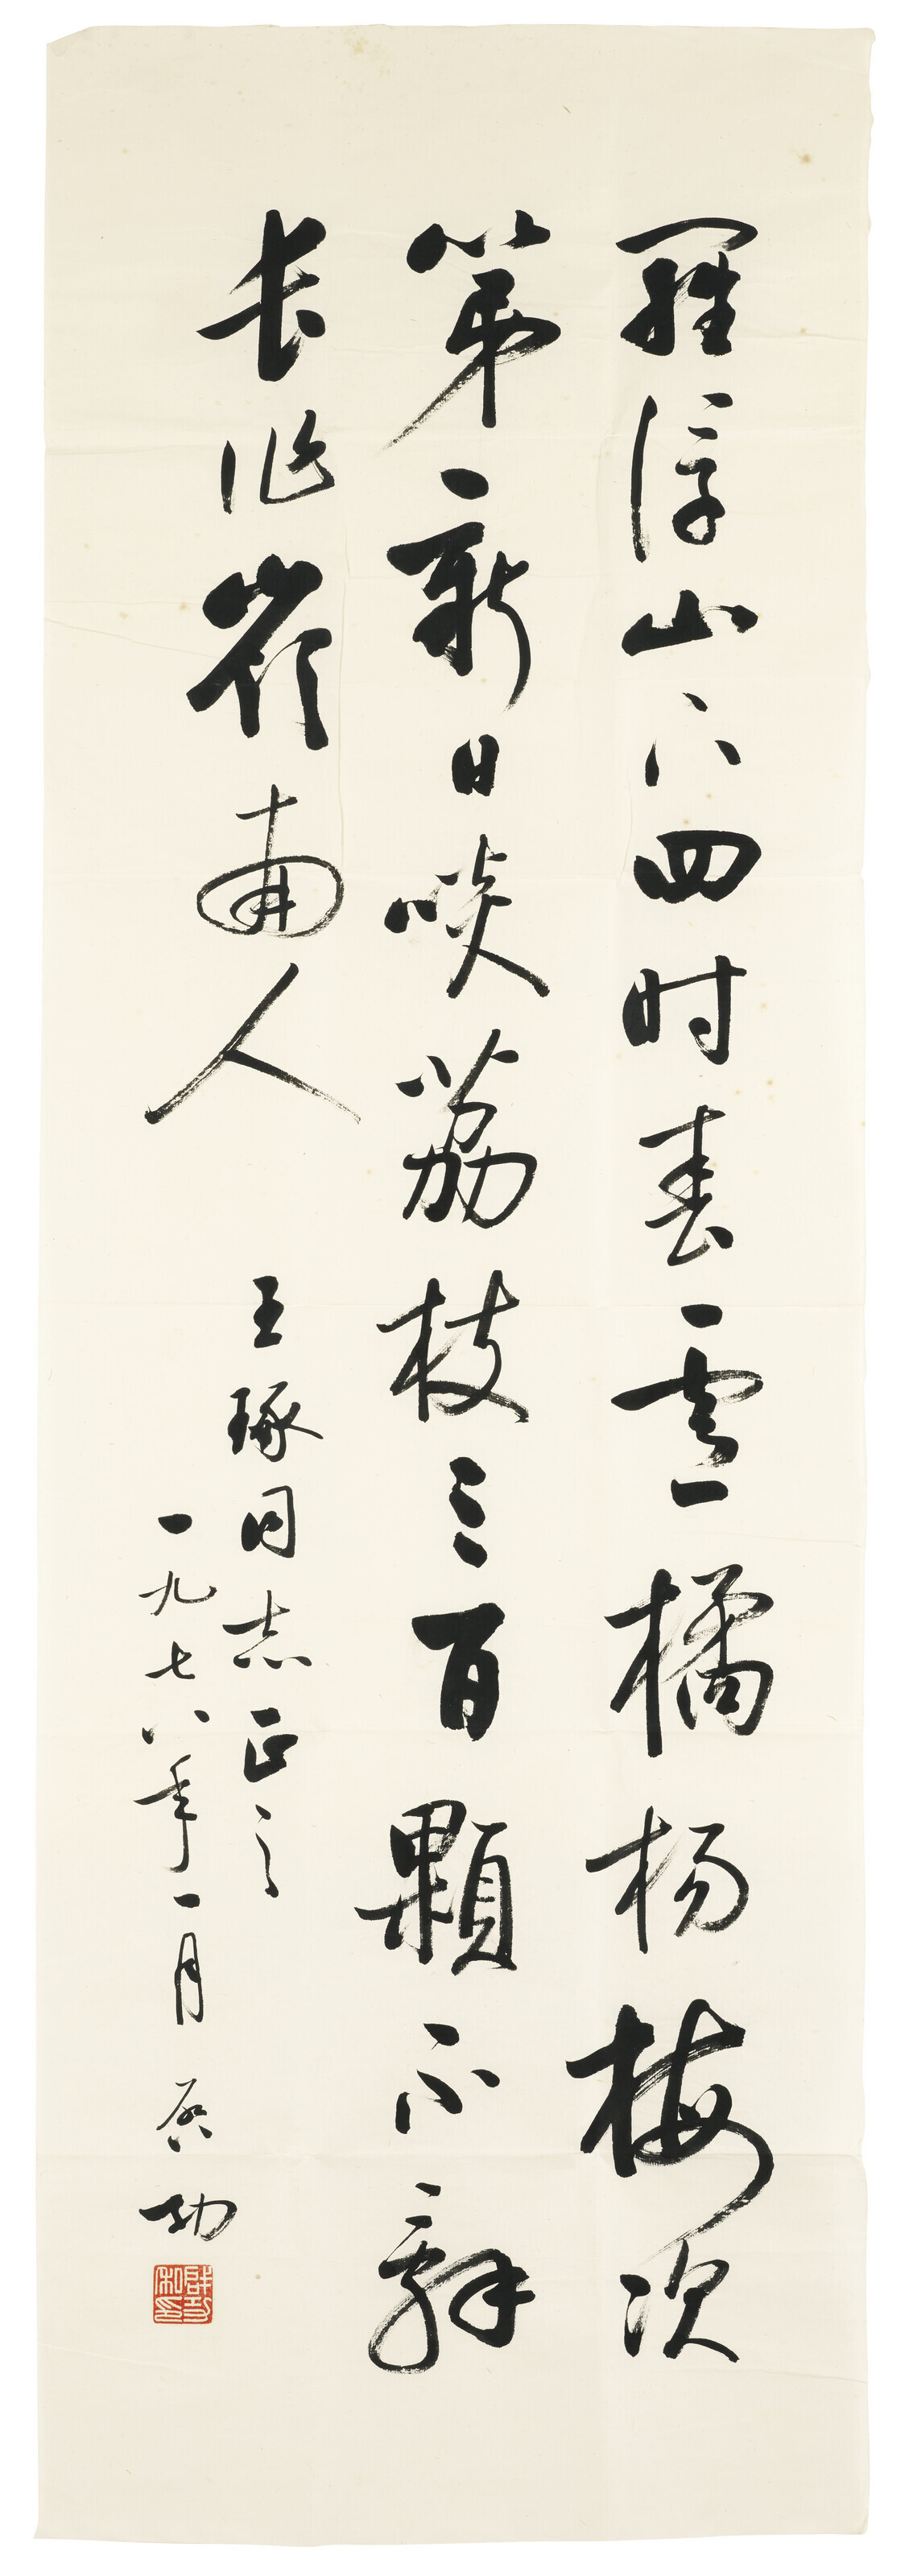 羅浮山下四时春盧橘杨梅次
第新日啖荔枝三百顆不辭
長作嶺南人
王琢同志正之
一九七八年一月 启功
啟功私印